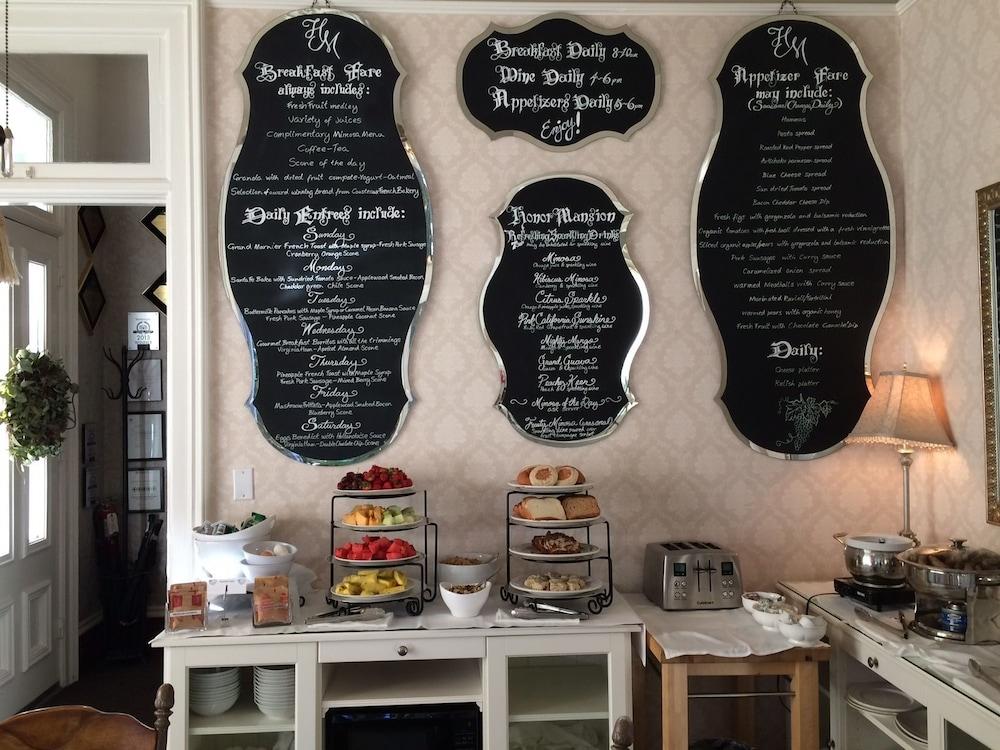 HM
Breakfast Fare
always includes:
Fresh fruit medley
Variety of Juices
Complimentary Mimosa Menu
Coffee-Tea
Scone of the day
Granola with dried fruit compote-Yogurt-Oatmeal
Selection of award winning bread from Costeaux French Bakery
Daily Entrees include:
Sunday
Grand Marnier French Toast with Maple syrup-Fresh Pork Sausage
Cranberry Orange Scone
Monday
Santa Fe Bake with Sundried Tomato sauce-Applewood Smoked Bacon
Cheddar green Chile Scone
Tuesday
Buttermilk Pancakes with Maple Syrup or Caramel Pecan Banana Sauce
Fresh Pork Sausage - Pineapple Coconut Scone
Wednesday
Gourmet Breakfast Burritos with all the trimmings
Virginia Ham - Apricot Almond Scone
Thursday
Pineapple French Toast with Maple Syrup
Fresh Pork Sausage - Mixed Berry Scone
Friday
Mushroom Frittata - Applewood Smoked Bacon
Blueberry Scone
Saturday
Eggs Benedict with Hollandaise Sauce
Virginia Ham - Double Chocolate Chip Scone
Breakfast Daily 8-10am
Wine Daily 4-6pm
Appetizers Daily 5-6pm
Enjoy!
Honor Mansion
Refreshing Sparkling Drinks
Mimosa
Orange juice & sparkling wine
Hibiscus Mimosa
Cranberry & sparkling wine
Citrus Sparkle
Pink California Sunshine
Ruby Red Grapefruit & sparkling wine
Mighty Mango
Mango & Sparkling wine
Grand Guava
Guava & Sparkling wine
Peachy Keen
Peach & sparkling wine
Mimosa of the Day
ask server
Fruity Mimosa (seasonal)
HM
Appetizer Fare
may include:
(Sometimes Changes Daily)
Hummus
Pesto spread
Roasted Red Pepper spread
Artichoke parmesan spread
Blue Cheese spread
Sun dried Tomato spread
Bacon Cheddar Cheese Dip
Fresh figs with gorgonzola and balsamic reduction
Organic tomatoes with fresh basil drizzled with a fresh vinaigrette
Sliced organic apples/pears with gorgonzola and balsamic reduction
Pork Sausages with Curry sauce
Caramelized onion spread
warmed Meatballs with Curry sauce
Marinated Ravioli/Tortellini
warmed pears with organic honey
Fresh Fruit with Chocolate Cannoli Dip
Daily:
Cheese platter
Relish platter
2013
Cuisinart